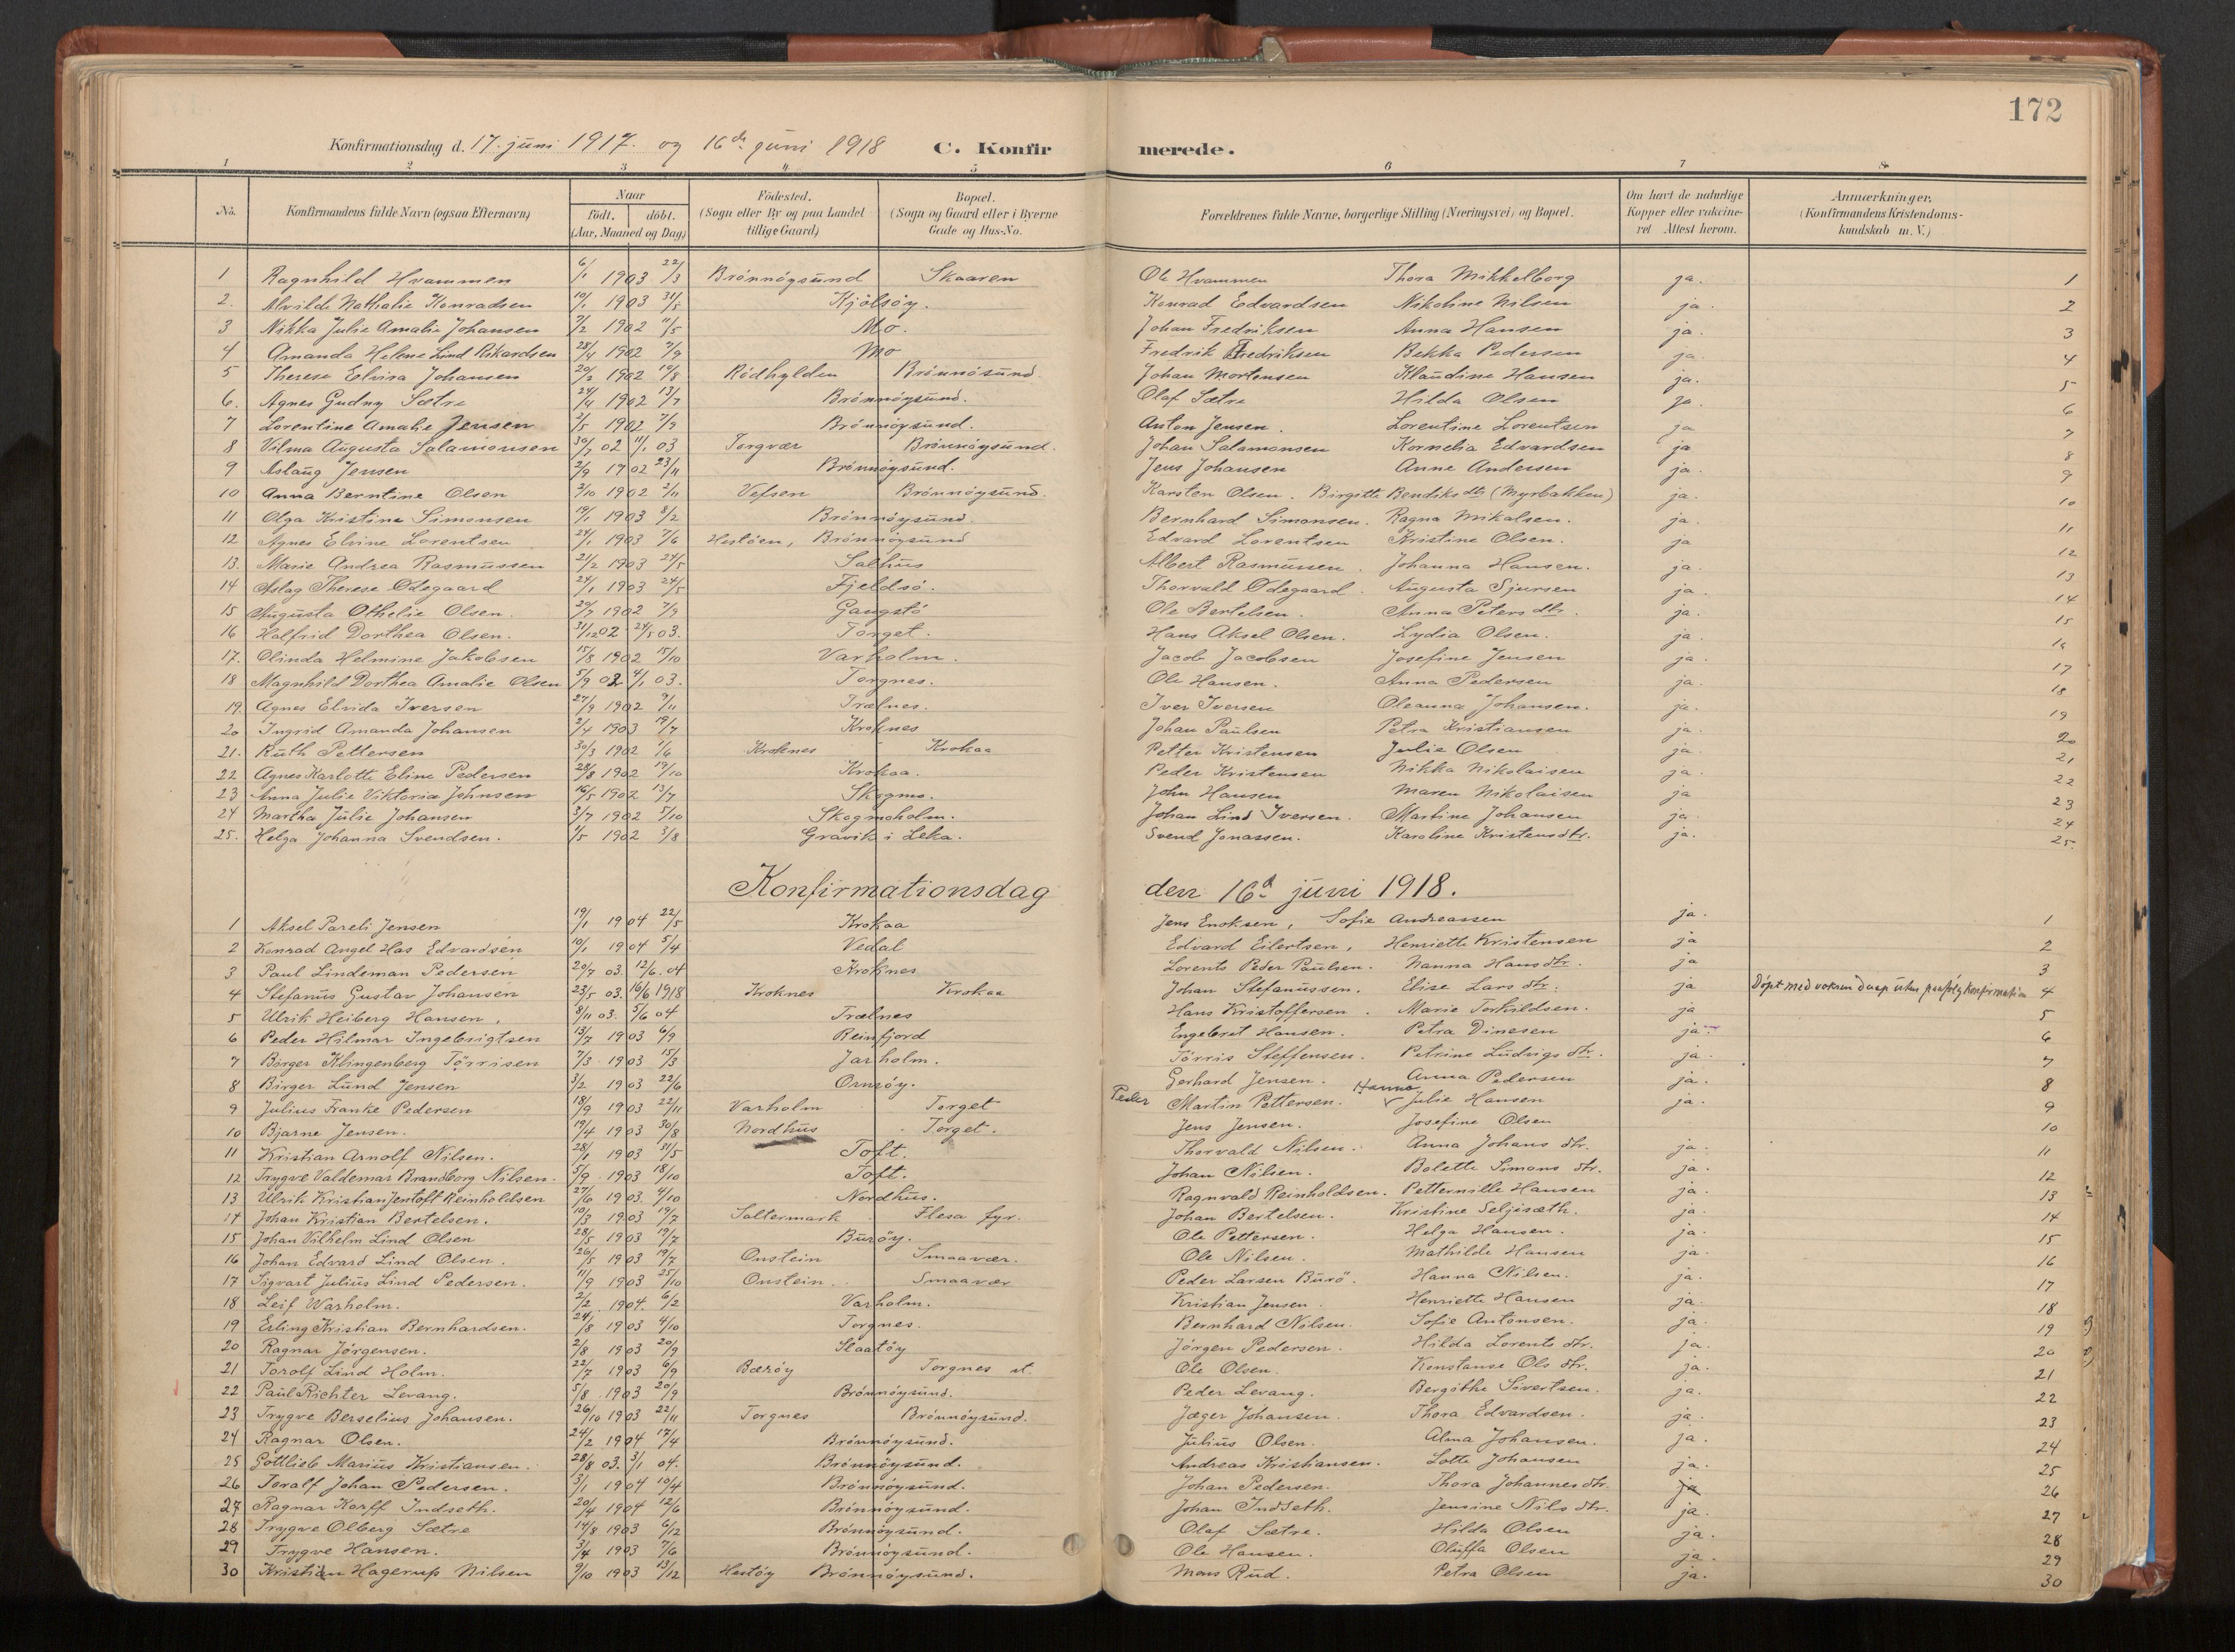 172
Konfirmationsdag d. 17. juni 1917. og 16de juni 1918 C. Konfirmerede.
1 2 3 4 5 6 7 8
No. Konfirmandens fulde Navn (ogsaa Efternavn) Naar födt. döbt. (Aar, Maaned og Dag) Födested. (Sogn eller By og paa Landet tillige Gaard) Bopæl. (Sogn og Gaard eller i Byerne Gade og Hus-No. Forældrenes fulde Navne, borgerlige Stilling (Næringsvei) og Bopæl. Om havt de naturlige Kopper eller vakcineret Attest herom. Anmærkninger, (Konfirmandens Kristendomskundskab m. V.)
1 Ragnhild Hvammen 6/1 1903 22/3 Brönnöysund Skaaren Ole Hvammen Thora Mikkelborg ja. 1
2. Alvilde Nathalie Konradsen 10/1 1903 31/5 Kjölsöy. Konrad Edvardsen Nikoline Nilsen ja. 2
3 Nikka Julie Amalie Johansen 7/2 1902 11/5 Mo. Johan Fredriksen Anna Hansen ja. 3
4 Amanda Helene Lind Rikardsen 28/4 1902 7/9 Mo Fredrik Fredriksen Bekka Pedersen ja 4
5 Therese Elvira Johansen 20/2 1902 10/8 Rödhylden Brönnösund Johan Mortensen Klaudine Hansen ja. 5
6. Agnes Gudny Sætre 24/4 1902 13/7 Brönnöysund. Olaf Sætre Hilda Olsen ja. 6
7 Lorentine Amalie Jensen 2/5 1902 7/9 Brönnöysund. Anton Jensen. Lorentine Lorentsen ja 7
8 Vilma Augusta Salamonsen 30/7 02 11/1 03 Torgvær Brönnöysund. Johan Salamonsen Kornelia Edvardsen ja 8
9 Aslaug Jensen 2/9 1902 23/11 Brönnöysund. Jens Johansen Anne Andersen ja. 9
10 Anna Berntine Olsen 3/10 1902 2/11 Vefsen Brönnöysund. Karsten Olsen. Birgitte Bendiksdtr (Myrbakken) ja. 10
11 Olga Kristine Simonsen 19/1 1903 8/2 Brönnöysund. Bernhard Simonsen. Ragna Mikalsen. ja. 11
12 Agnes Elvine Lorentsen 24/1 1903 7/6 Hestöen, Brönnöysund Edvard Lorentsen Kristine Olsen. ja 12
13. Marie Andrea Rasmussen 21/2 1903 24/5 Salhus Albert Rasmussen. Johanna Hansen. ja. 13
14 Aslag Therese Ødegaard 24/1 1903 24/5 Fjeldsö. Thorvald Ødegaard. Augusta Sjursen ja. 14
15 Augusta Othelie Olsen. 29/7 1902 7/9 Gangstö Ole Bertelsen. Anna Petersdtr. ja. 15
16 Halfrid Dorthea Olsen. 31/12 02 24/5 03. Torget. Hans Aksel Olsen. Lydia Olsen. ja. 16
17. Olinda Helmine Jakobsen 15/8 1902 15/10 Varholm. Jacob Jacobsen Josefine Jensen ja. 17
18 Magnhild Dorthea Amalie Olsen 5/9 02 4/1 03. Torgnes. Ole Hansen. Anna Pedersen ja. 18
19. Agnes Elvida Iversen 27/9 1902 9/11 Trælnes. Iver Iversen Oleanna Johansen. ja. 19
20 Ingrid Amanda Johansen 2/4 1903 19/7 Kroknes Johan Paulsen Petra Kristiansen ja. 20
21. Ruth Pettersen 30/3 1902 1/6 Kroknes Krokaa Petter Kristensen Julie Olsen ja. 21
22 Agnes Karlotte Eline Pedersen 28/8 1902 19/10 Krokaa. Peder Kristensen Nikka Nikolaisen ja. 22
23 Anna Julie Viktoria Johnsen 16/5 1902 13/7 Skogmo. John Hansen Maren Nikolaisen ja 23
24 Martha Julie Johansen 3/7 1902 5/10 Skogmoholm. Johan Lind Iversen. Martine Johansen ja. 24
25. Helga Johanna Svendsen. 1/5 1902 3/8 Gravik i Leka. Svend Jonassen. Karoline Kristensdtr. ja. 25.
Konfirmationsdag den 16d juni 1918.
1 Aksel Pareli Jensen 19/1 1904 22/5 Krokaa Jens Enoksen, Sofie Andreassen ja. 1
2 Konrad Angel Has Edvardsen 10/1 1904 5/4 Vedal Edvard Eilertsen, Henriette Kristensen ja 2
3 Paul Lindeman Pedersen 20/7 03. 12/6. 04 Kroknes Lorents Peder Paulsen. Nanna Hansdtr. ja 3
4 Stefanus Gustav Johansen 23/5 03. 16/6 1918 Kroknes Krokaa Johan Stefanussen. Elise Larsdtr. ja Döpt med voksen daap uten paafölg konfirmation 4
5 Ulrik Heiberg Hansen. 8/11 03. 5/6 04 Trælnes Hans Kristoffersen. Marie Torkildsen. ja 5
6 Peder Hilmar Ingebrigtsen 13/7 1903 6/9 Reinfjord Engebret Hansen. Petra Dinesen ja 6
7 Birger Klingenberg Törrisen 7/3 1903 15/3 Jarholm. Törris Steffensen. Petrine Ludvigsdtr. ja. 7
8 Birger Lund Jensen 3/2 1903 22/6 Ornsöy. Gerhard Jensen. Anna Pedersen ja. 8
9 Julius Franke Pedersen 18/9 1903 22/11 Varholm Torget Peder Martin Pettersen. Hanna Julie Hansen ja. 9
10 Bjarne Jensen. 19/4 1903 30/8 Nordhus Torget. Jens Jensen. Josefine Olsen 10
11 Kristian Arnolf Nilsen. 28/1 1903 31/5 Toft. Thorvald Nilsen. Anna Johansdtr. ja. 11
12 Trygve Valdemar Brandborg Nilsen. 5/9 1903 18/10 Toft. Johan Nilsen. Bolette Simonsdtr. ja. 12
13 Ulrik Kristian Jentoft Reinholdsen 27/6 1903. 4/10 Nordhus. Ragnvald Reinholdsen. Petternille Hansen ja. 13
14 Johan Kristian Bertelsen. 10/3 1903 19/7 Saltermark Flesa fyr. Johan Bertelsen. Kristine Seljesæth. ja. 14
15 Johan Vilhelm Lind Olsen 28/5 1903 19/7 Buröy. Ole Pettersen. Helga Hansen. ja. 15
16 Johan Edvard Lind Olsen. 26/5 1903 19/7 Onstein Smaavær. Ole Nilsen. Mathilde Hansen ja. 16
17 Sigvart Julius Lind Pedersen. 11/9 1903 25/10 Onstein. Smaavær Peder Larsen Burö. Hanna Nilsen. ja. 17
18 Leif Warholm. 2/2 1904. 6/2 Varholm. Kristian Jensen. Henriette Hansen ja. 18
19 Erling Kristian Bernhardsen. 24/8 1903 4/10 Torgnes. Bernhard Nilsen. Sofie Antonsen. ja. 19
20 Ragnar Jörgensen. 2/8 1903 20/9 Slaatöy Jörgen Pedersen. Hilda Lorentsdtr. ja. 20
21 Torolf Lind Holm. 22/7 1903 6/9 Bæröy Torgnes st. Ole Olsen Konstanse Olsdtr. ja. 21
22 Paul Richter Levang. 5/8 1903 20/9 Brönnöysund. Peder Levang. Bergithe Sivertsen. ja. 22
23 Trygve Berselius Johansen. 26/10 1903 22/11 Torgnes Brönnöysund. Jæger Johansen. Thora Edvardsen. ja. 23
24 Ragnar Olsen. 24/2 1904 17/4 Brönnöysund. Julius Olsen. Alma Johansen. ja. 24
25 Gottlieb Marius Kristiansen. 28/8 03. 3/1 04. Brönnöysund. Andreas Kristiansen. Lotte Johansen ja. 25
26 Toralf Johan Pedersen. 3/1 1904 10/4 Brönnöysund. Johan Pedersen. Thora Johannesdtr. ja 26
27 Ragnar Korff Indseth. 20/4 1904 12/6 Brönnöysund. Johan Indseth. Jensine Nilsdtr. ja. 27
28 Trygve Olberg Sætre 14/8 1903 6/12 Brönnöysund. Olaf Sætre. Hilda Olsen ja. 28
29 Trygve Hansen. 3/4 1903 7/6 Brönnöysund. Ole Hansen. Oluffa Olsen ja. 29
30 Kristian Hagerup Nilsen 9/10 1903 13/12 Hestöy Brönnöysund. Mons Rud. Petra Olsen ja. 30